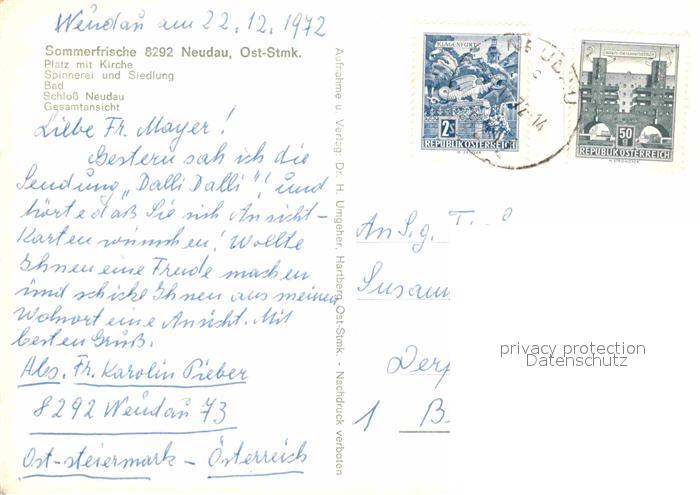 Neudau am 22.12.1972
Sommerfrische 8292 Neudau, Ost-Stmk.
Platz mit Kirche
Spinnerei und Siedlung
Bad
Schloß Neudau
Gesamtansicht
Liebe Fr. Mayer!
Gestern sah ich die
Sendung „Dalli Dalli"! und
hörte daß Sie sich Ansicht-
Karten wünschen! Wollte
Ihnen eine Freude machen
und schicke Ihnen aus meinem
Wohnort eine Ansicht. Mit
besten Gruß.
Abs. Fr. Karolin Pieber
8292 Neudau 73
Ost-steiermark – Österreich
Aufnahme u. Verlag: Dr. H. Umgeher, Hartberg Ost-Stmk. - Nachdruck verboten
KLAGENFURT
2S
REPUBLIK ÖSTERREICH
NEUDAU
50
g
REPUBLIK ÖSTERREICH
An S.g.
Susan
Derp
1 B
privacy protection
Datenschutz